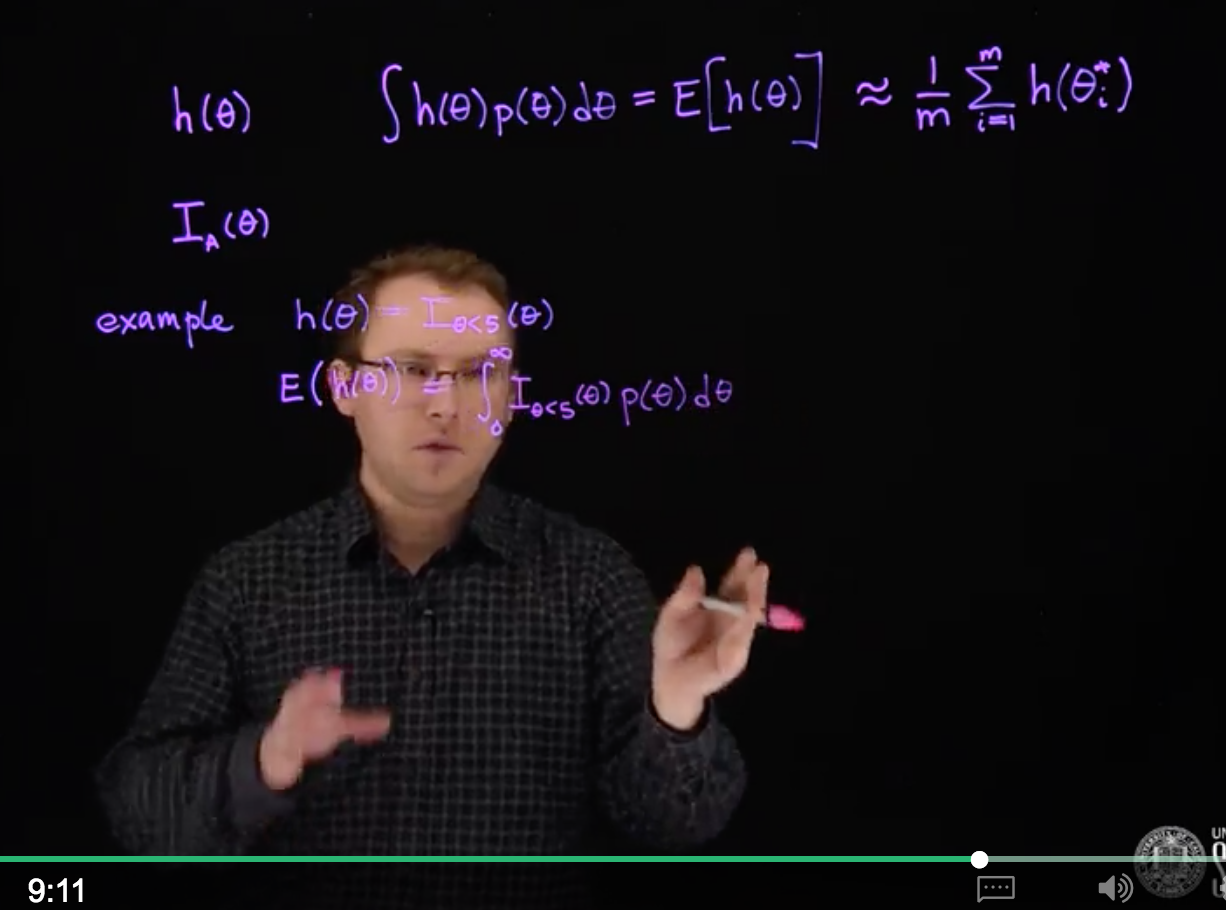 h(θ) ∫h(θ)p(θ)dθ = E[h(θ)] ≈ 1/m ∑_{i=1}^{m} h(θ_i^*)
I_A(θ)
example h(θ) = I_{θ<5}(θ)
E(h(θ)) = ∫_0^∞ I_{θ<5}(θ) p(θ)dθ
9:11